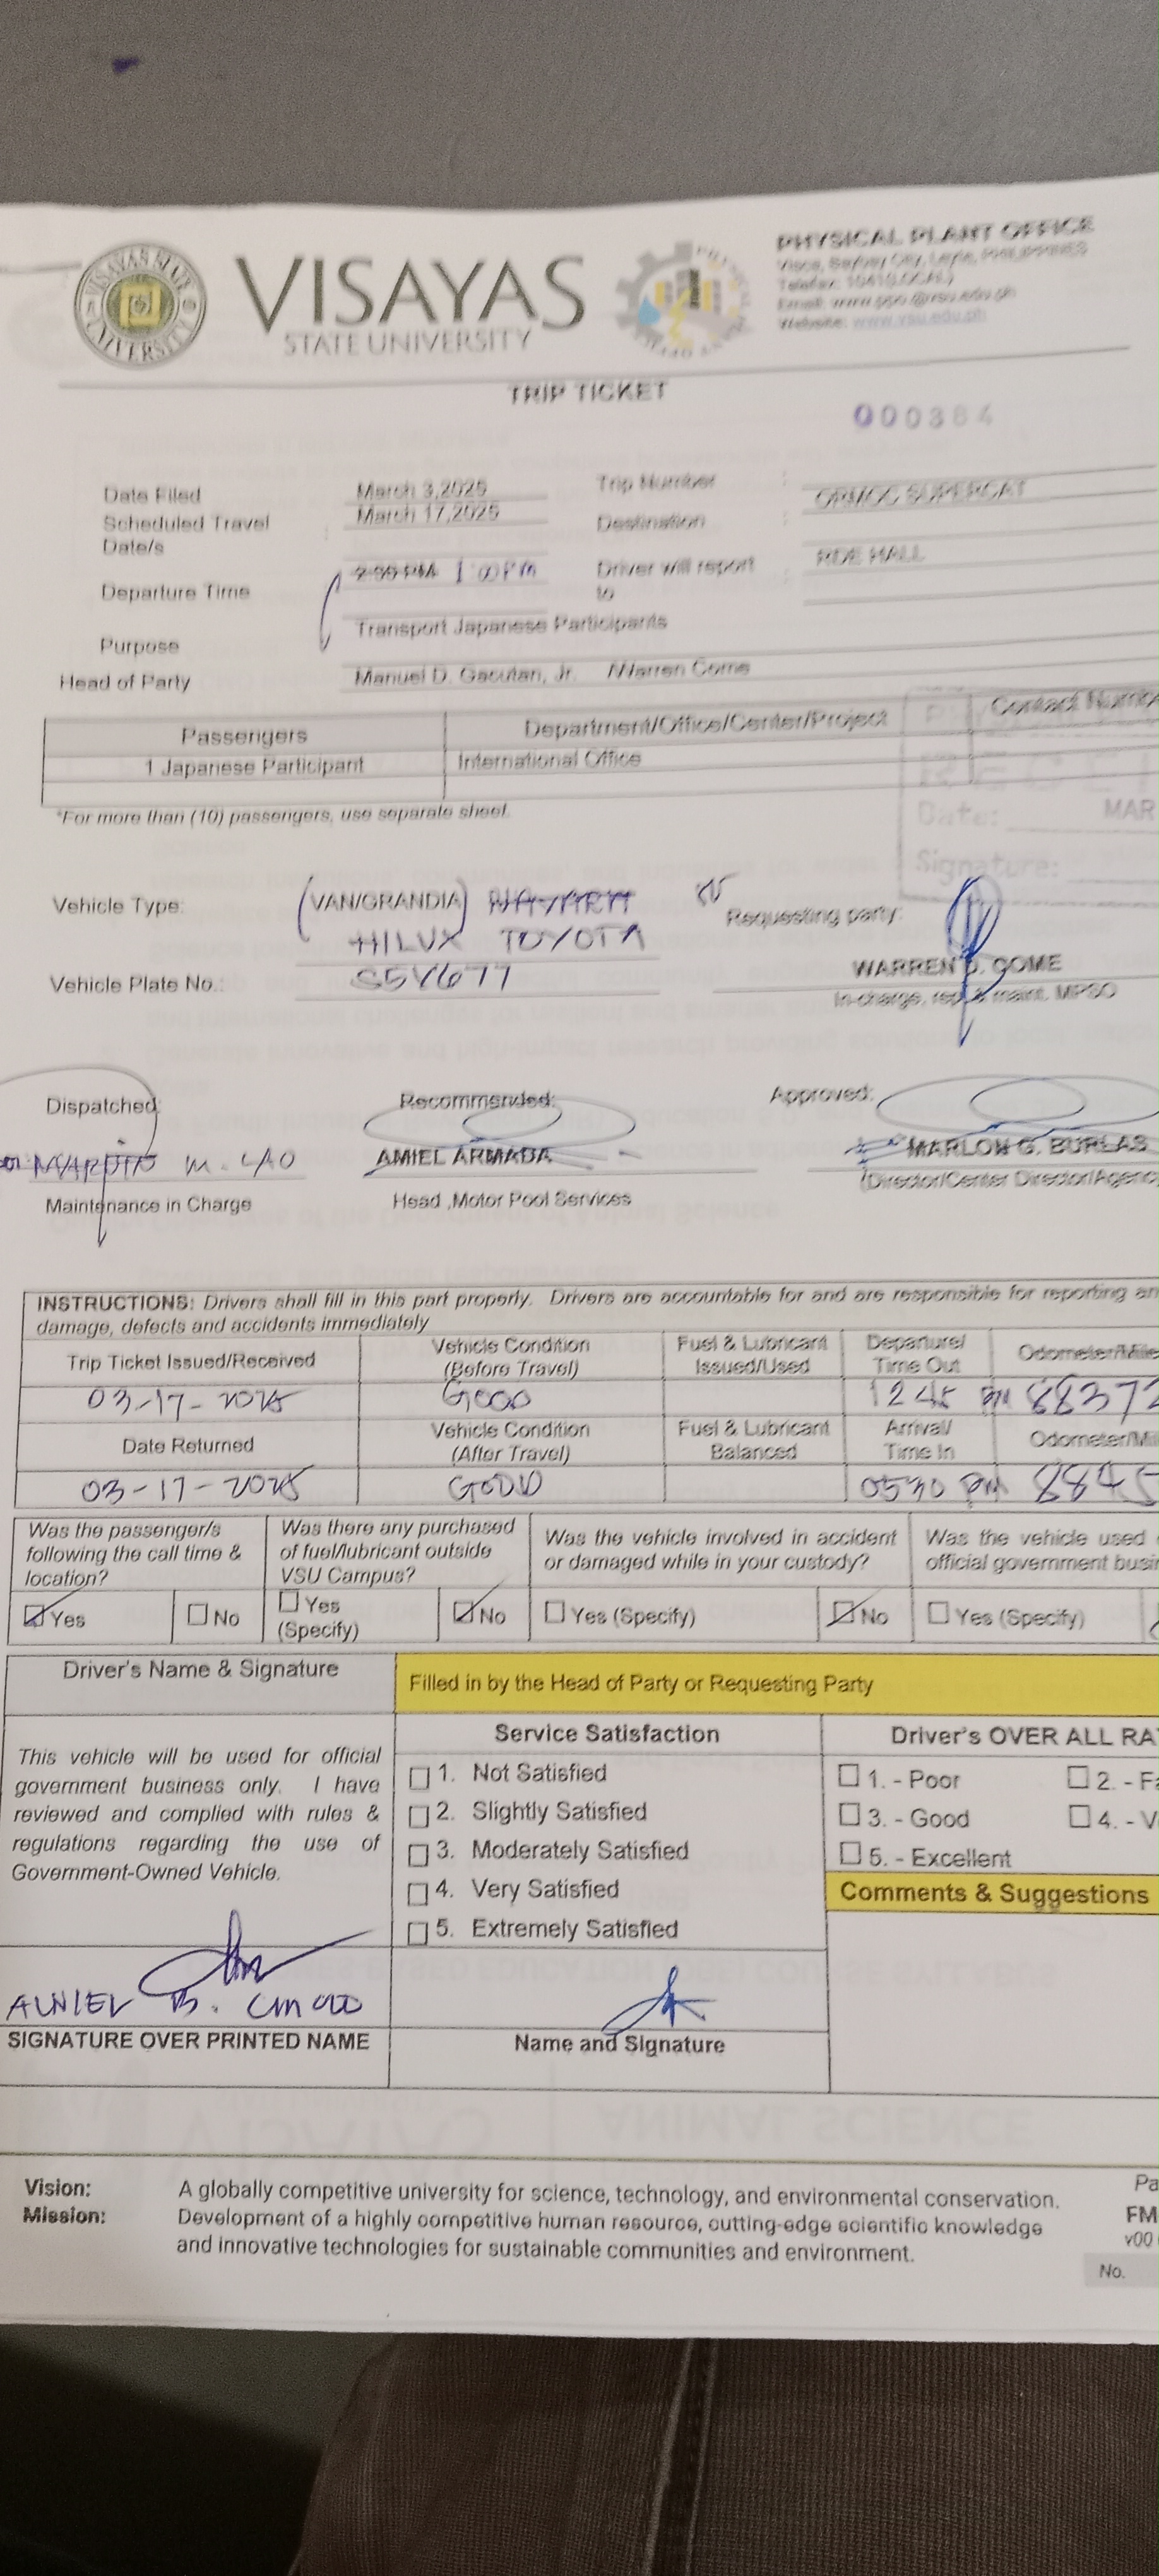 VISAYAS STATE UNIVERSITY
VISAYAS
STATE UNIVERSITY
PHYSICAL PLANT OFFICE
Visca, Baybay City, Leyte, PHILIPPINES
Website: www.vsu.edu.ph
TRIP TICKET
000364
Date Filed March 3,2025 Trip Number :
Scheduled Travel Date/s : March 17,2025 Destination : ORMOC SUPERCAT
Departure Time 1:00PM Driver will report to : RDE HALL
Purpose Transport Japanese Participants
Head of Party Manuel D. Gacutan, Jr. /Warren Come
Passengers Department/Office/Center/Project Contact Numbe
1 Japanese Participant International Office
*For more than (10) passengers, use separate sheet.
Date: MAR
Signature:
Vehicle Type: (VAN/GRANDIA) Requesting party:
HILUX TOYOTA
Vehicle Plate No.: S5Y677 WARREN D. COME
In-charge, rep. & maint. MPSO
Dispatched: Recommended: Approved:
M. LAO AMIEL ARMADA MARLON G. BURLAS
Maintenance in Charge Head ,Motor Pool Services (Director/Center Director/Agency
INSTRUCTIONS: Drivers shall fill in this part properly. Drivers are accountable for and are responsible for reporting an
damage, defects and accidents immediately
Trip Ticket Issued/Received Vehicle Condition (Before Travel) Fuel & Lubricant Issued/Used Departure/ Time Out Odometer/Mile
03-17-2025 GOOD 1245 PM 88372
Date Returned Vehicle Condition (After Travel) Fuel & Lubricant Balanced Arrival/ Time In Odometer/Mil
03-17-2025 GOOD 0530 PM 8845
Was the passenger/s following the call time & location? Was there any purchased of fuel/lubricant outside VSU Campus? Was the vehicle involved in accident or damaged while in your custody? Was the vehicle used official government busi
Yes No Yes (Specify) No Yes (Specify) No Yes (Specify)
Driver's Name & Signature Filled in by the Head of Party or Requesting Party
Service Satisfaction Driver's OVER ALL RA
This vehicle will be used for official
government business only. I have
reviewed and complied with rules &
regulations regarding the use of
Government-Owned Vehicle.
1. Not Satisfied
2. Slightly Satisfied
3. Moderately Satisfied
4. Very Satisfied
5. Extremely Satisfied
1. - Poor 2. - Fa
3. - Good 4. - V
5. - Excellent
Comments & Suggestions
B.
SIGNATURE OVER PRINTED NAME Name and Signature
Vision: A globally competitive university for science, technology, and environmental conservation.
Mission: Development of a highly competitive human resource, cutting-edge scientific knowledge
and innovative technologies for sustainable communities and environment.
Pa
FM
v00
No.